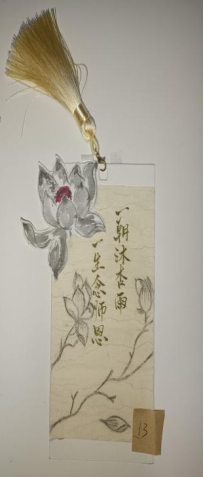 一朝沐杏雨
一生念师恩
13